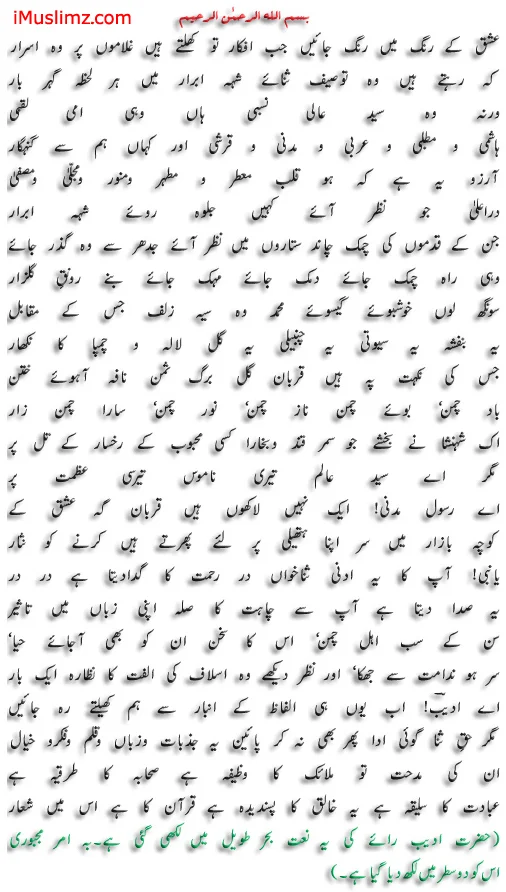 iMuslimz.com
بسم الله الرحمٰن الرحیم
عشق کے رنگ میں رنگ جائیں جب افکار تو کھلتے ہیں غلاموں پر وہ اسرار
کہ رہتے ہیں وہ توصیف ثنائے شہہ ابرار میں ہر لحظہ گہر بار
ورنہ وہ سید عالی نسبی ہاں وہی امی لقبی
ہاشمی و مطلبی و عربی و مدنی و قرشی اور کہاں ہم سے گنہگار
آرزو یہ ہے کہ ہو قلب معطر و مطہر ومنور ومجلّٰی ومصفیٰ
دراعلیٰ جو نظر آئے کہیں جلوہ روئے شہہ ابرار
جن کے قدموں کی چمک چاند ستاروں میں نظر آئے جدھر سے وہ گذر جائے
وہی راہ چمک جائے دمک جائے مہک جائے بنے رونق گلزار
سونگھ لوں خوشبوئے گیسوئے محمد وہ سیہ زلف جس کے مقابل
یہ بنفشہ یہ سیوتی یہ چنبیلی یہ گل لالہ و چمپا کا نکھار
جس کی نکہت پہ ہیں قربان گل برگ سمن نافہ آہوئے ختن
باد چمن، بوئے چمن ناز چمن، نور چمن، سارا چمن زار
اک شہنشا نے بخشے جو سمر قند وبخارا کسی محبوب کے رخسار کے تل پر
مگر اے سید عالم تیری ناموس تیری عظمت پر
اے رسول مدنی! ایک نہیں لاکھوں ہیں قربان گہ عشق کے
کوچہ بازار میں سر اپنا ہتھیلی پر لئے پھرتے ہیں کرنے کو نثار
یانبی! آپ کا یہ ادنیٰ ثناخواں در رحمت کا گدادیتا ہے در در
یہ صدا دیتا ہے آپ سے چاہت کا صلہ اپنی زباں میں تاثیر
سن کے سب اہل چمن، اس کا سخن ان کو بھی آجائے حیا،
سر ہو ندامت سے جھکا، اور نظر دیکھے وہ اسلاف کی الفت کا نظارہ ایک بار
اے ادیب! اب یوں ہی الفاظ کے انبار سے ہم کھیلتے رہ جائیں
مگر حق ثنا گوئی ادا پھر بھی نہ کر پائین یہ جذبات وزباں وقلم وفکرو خیال
ان کی مدحت تو ملائک کا وظیفہ ہے صحابہ کا طرقیہ ہے
عبادت کا سلیقہ ہے یہ خالق کا پسندیدہ ہے قرآن کا ہے اس میں شعار
(حضرت ادیب رائے کی یہ نعت بحر طویل میں لکھی گئی ہے۔بہ امر مجبوری
اس کو دو سطر میں لکھ دیا گیا ہے۔)